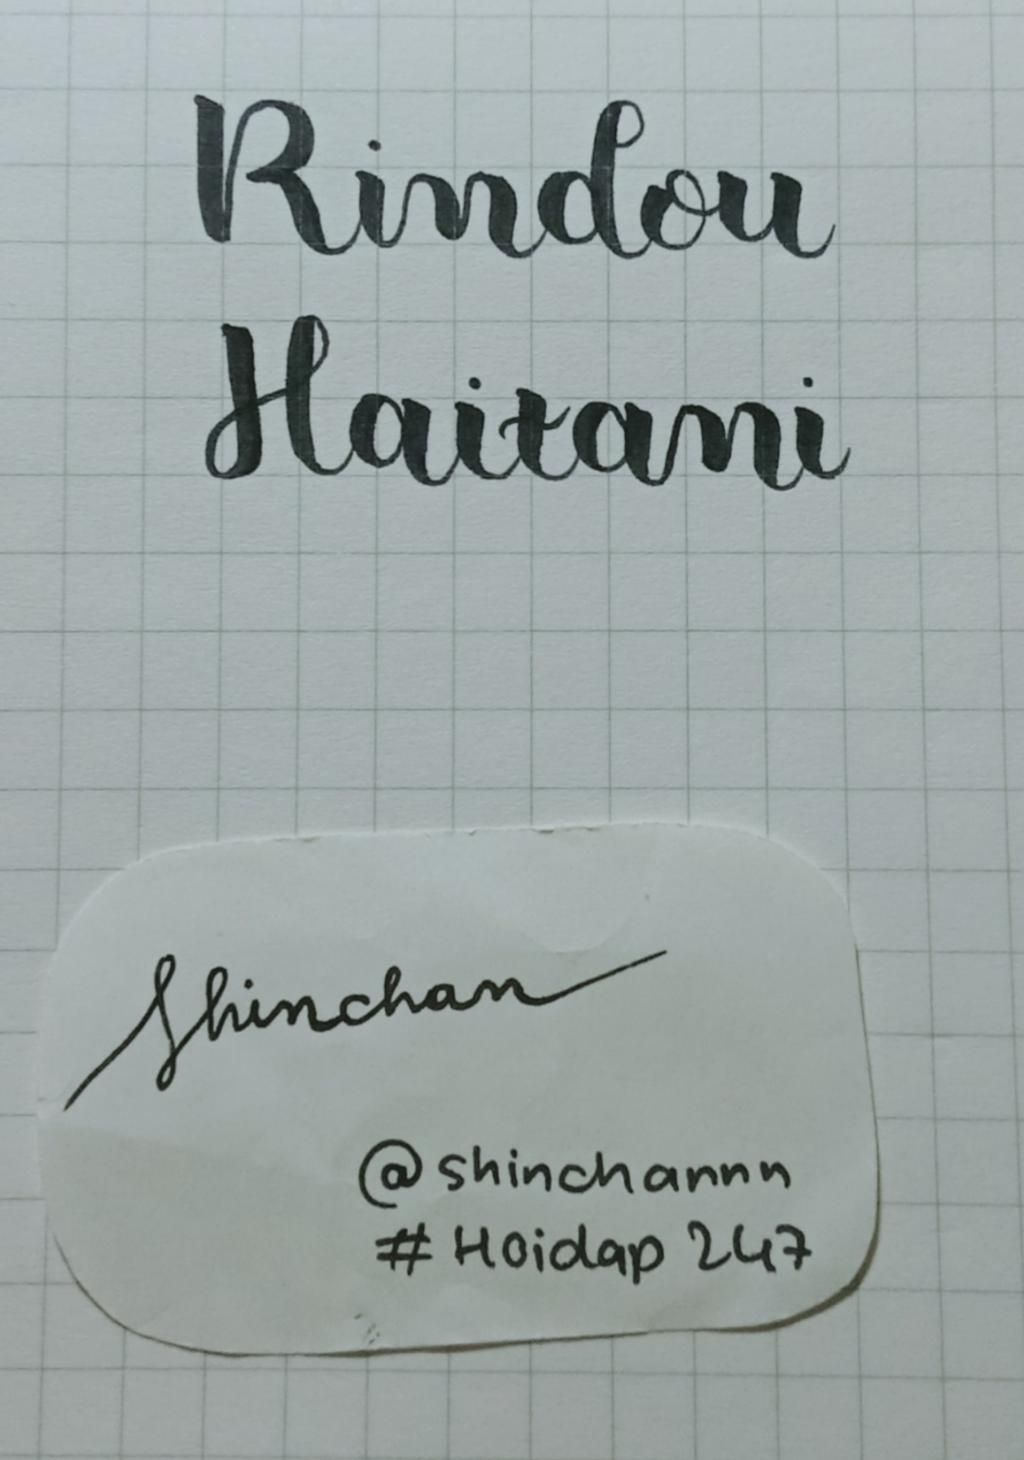 Rindou
Haitani
Shinchan
@shinchannn
#Hoidap 247